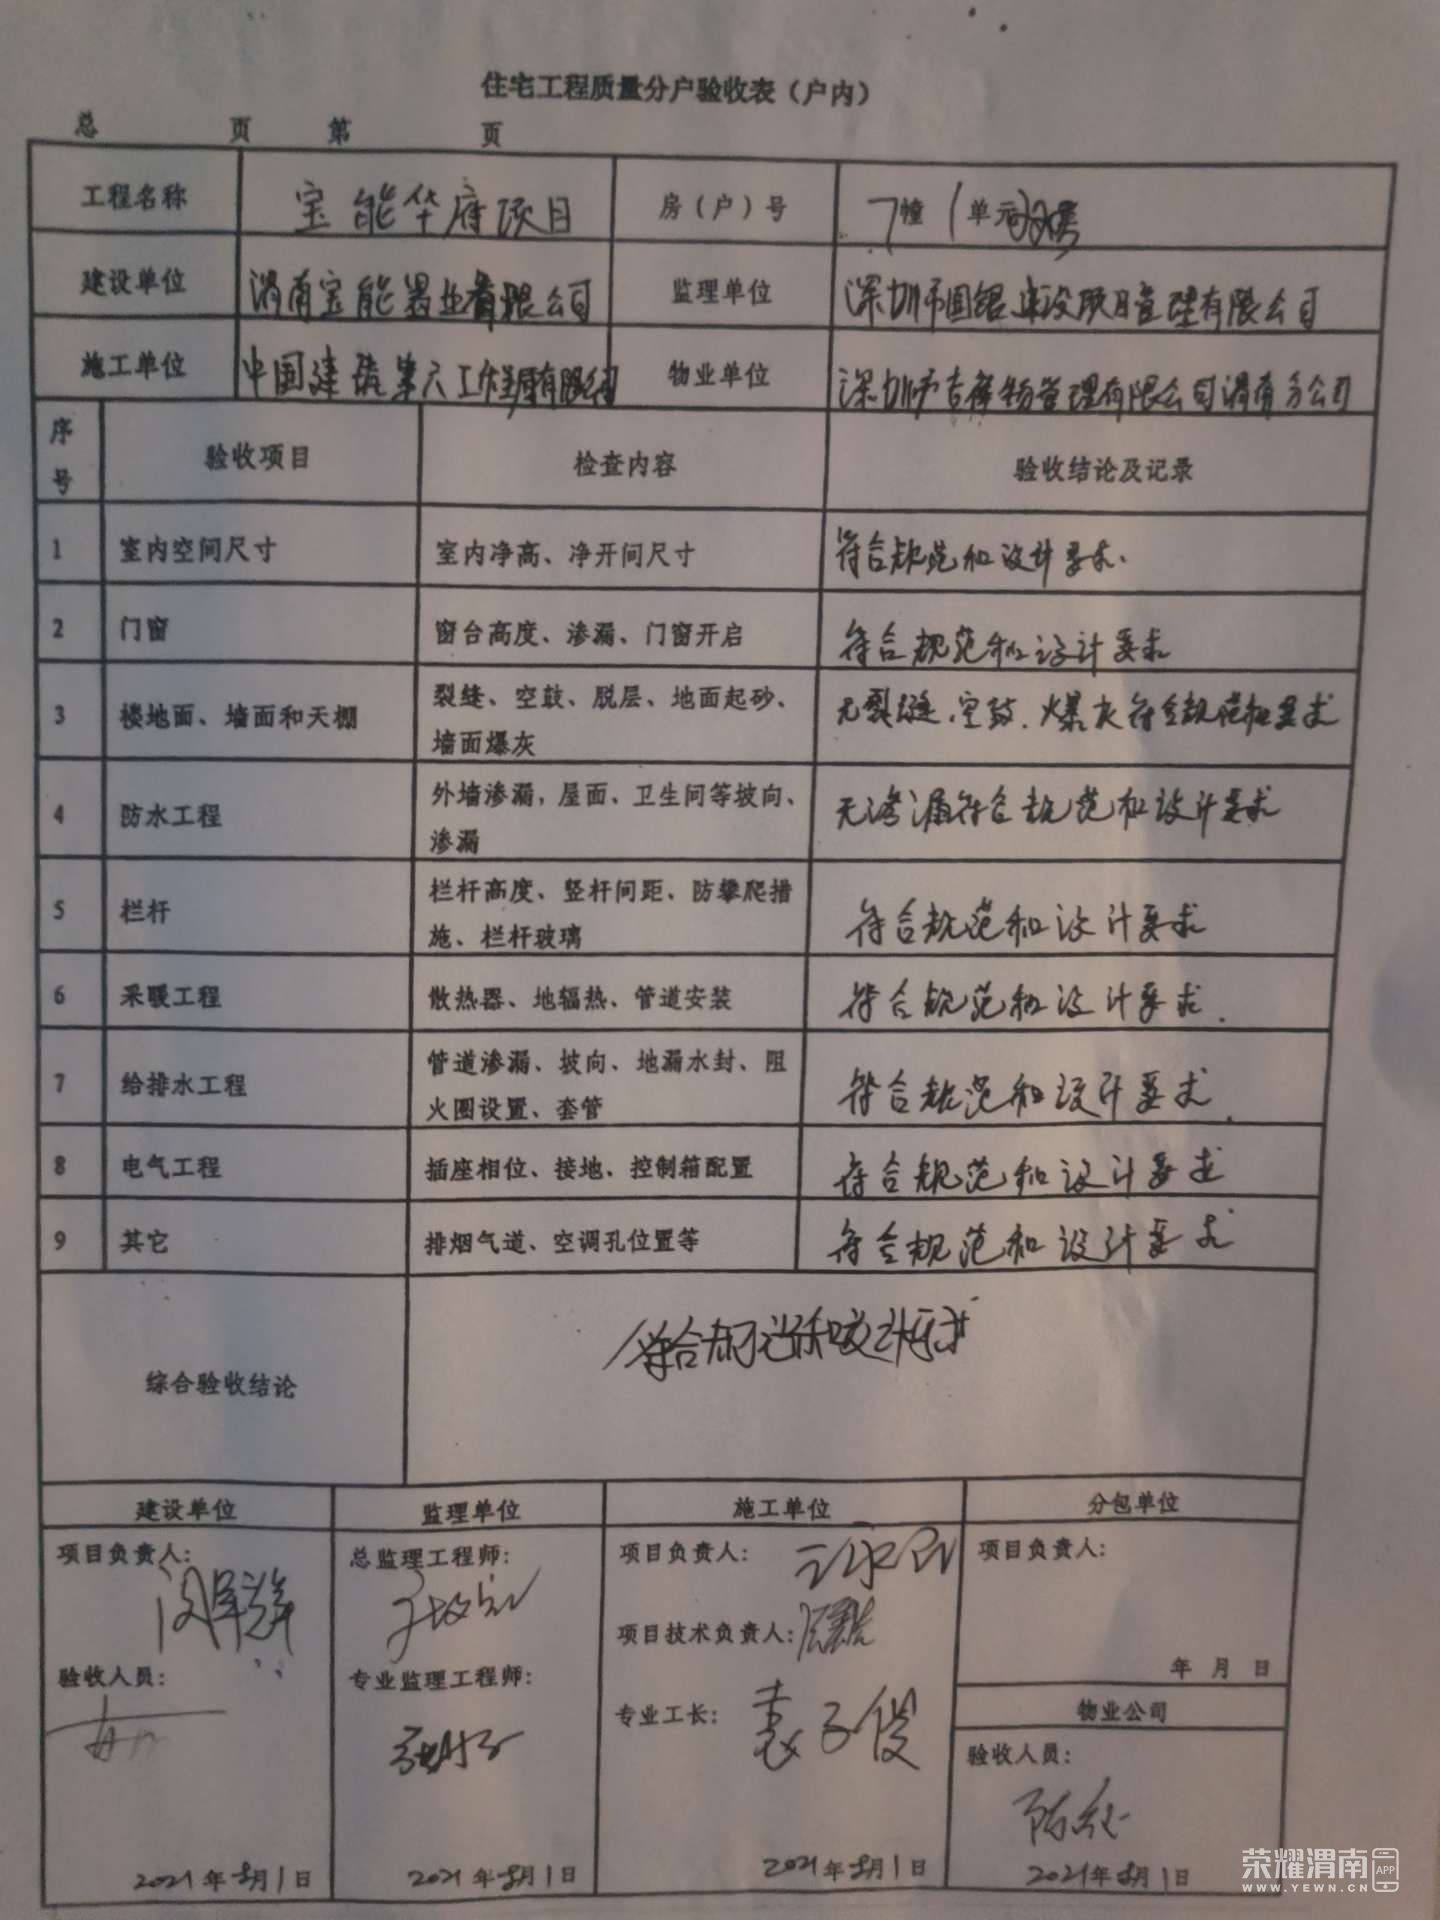 住宅工程质量分户验收表（户内）
总 页 第 页
工程名称 宝能华府项目 房（户）号 7幢1单元
建设单位 渭南宝能置业有限公司 监理单位 深圳市国银建设项目管理有限公司
施工单位 中国建筑第六工程局有限公司 物业单位 深圳市吉祥物管理有限公司渭南分公司
序号 验收项目 检查内容 验收结论及记录
1 室内空间尺寸 室内净高、净开间尺寸 符合规范和设计要求.
2 门窗 窗台高度、渗漏、门窗开启 符合规范和设计要求
3 楼地面、墙面和天棚 裂缝、空鼓、脱层、地面起砂、 无裂缝.空鼓.爆灰符合规范和要求
墙面爆灰
4 防水工程 外墙渗漏，屋面、卫生间等坡向、 无渗漏符合规范和设计要求
渗漏
5 栏杆 栏杆高度、竖杆间距、防攀爬措 符合规范和设计要求
施、栏杆玻璃
6 采暖工程 散热器、地辐热、管道安装 符合规范和设计要求.
7 给排水工程 管道渗漏、坡向、地漏水封、阻 符合规范和设计要求.
火圈设置、套管
8 电气工程 插座相位、接地、控制箱配置 符合规范和设计要求
9 其它 排烟气道、空调孔位置等 符合规范和设计要求
综合验收结论 符合规范和设计要求
建设单位 监理单位 施工单位 分包单位
项目负责人： 总监理工程师： 项目负责人： 项目负责人：
项目技术负责人：
验收人员： 专业监理工程师： 年 月 日
专业工长：袁子俊 物业公司
验收人员：
2021年 月1日 2021年 月1日 2021年 月1日 2021年 月1日
荣耀渭南 APP
WWW.YEWN.CN